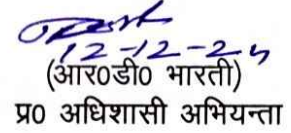 12-12-24
(आर0डी0 भारती)
प्र0 अधिशासी अभियन्ता